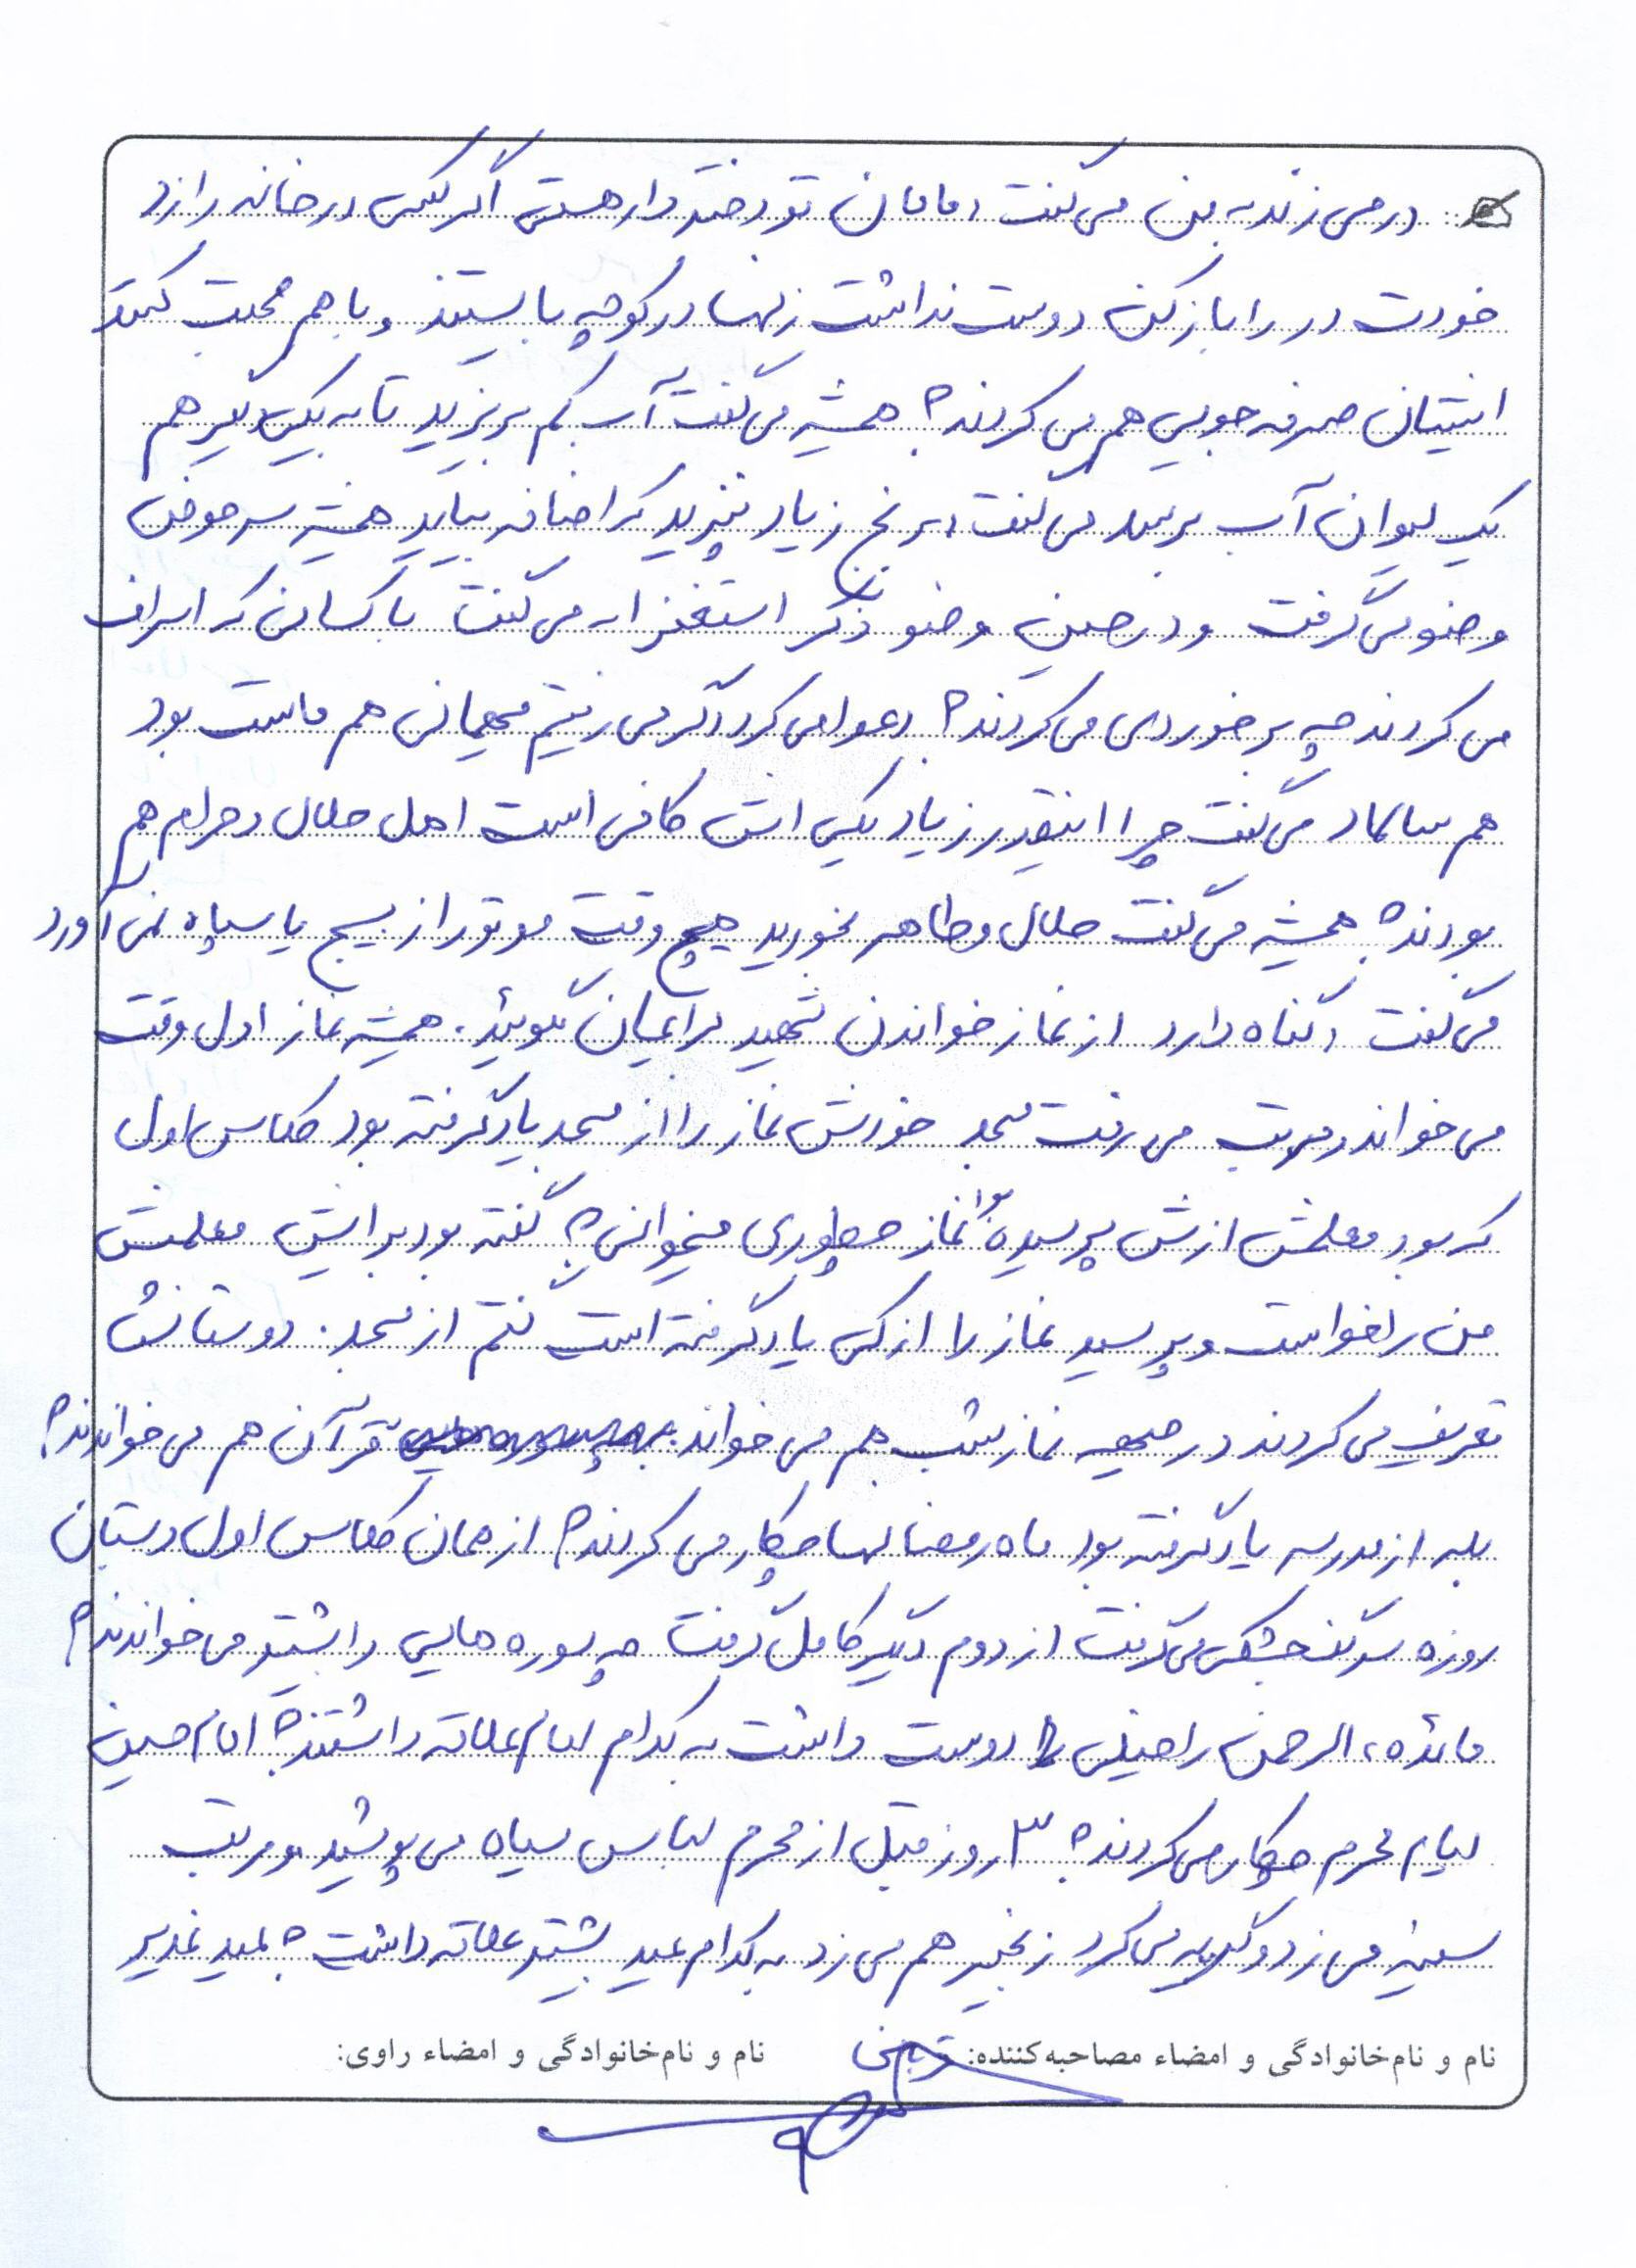 در می زند به من می گفت ، مامان تو دختر دار هستی اگر کسی در خانه را زد
خودت در را باز کن دوست نداشت زنها در کوچه بایستند و با هم صحبت کنند
ایشان صرفه جویی هم می کردند؟ همیشه می گفت آب کم بریزید تا به یکی دیگر هم
یک لیوان آب برسد می گفت ، برنج زیاد نپزید که اضافه بیاید همیشه سر حوض
وضو می گرفت و در حین وضو ذکر استغفرالله می گفت با کسانی که اسراف
می کردند چه برخوردی می کردند؟ دعوا می کرد اگر می رفتیم مهمانی هم ماست بود
هم سالاد می گفت چرا اینقدر زیاد یکی اش کافی است اهل حلال و حرام هم
بودند؟ همیشه می گفت حلال و طاهر بخورید هیچ وقت موتور از بسیج یا سپاه نمی آورد
می گفت ، گناه دارد از نماز خواندن شهید برایمان بگوئید. همیشه نماز اول وقت
می خواند و مرتب می رفت مسجد خودش نماز را از مسجد یاد گرفته بود کلاس اول
که بود معلمش ازش پرسیده بود نماز چطوری میخوانی؟ گفته بود برایش معلمش
من را خواست و پرسید نماز را از کی یاد گرفته است گفتم از مسجد. دوستانش
تعریف می کردند در جبهه نماز شب هم می خواند. قرآن هم می خواندند؟
بله از مدرسه یاد گرفته بود ماه رمضانها چکار می کردند؟ از همان کلاس اول دبستان
روزه کله گنجشکی می گرفت از دوم دیگر کامل گرفت چه سوره هایی را بیشتر می خواندند؟
مائده، الرحمن را خیلی دوست داشت به کدام امام علاقه داشتند؟ امام حسین
ایام محرم چکار می کردند؟ ۳ روز قبل از محرم لباس سیاه می پوشید و مرتب
سینه می زد و گریه می کرد زنجیر هم می زد به کدام عید بیشتر علاقه داشت؟ عید غدیر
نام و نام‌خانوادگی و امضاء مصاحبه‌کننده: نام و نام‌خانوادگی و امضاء راوی: